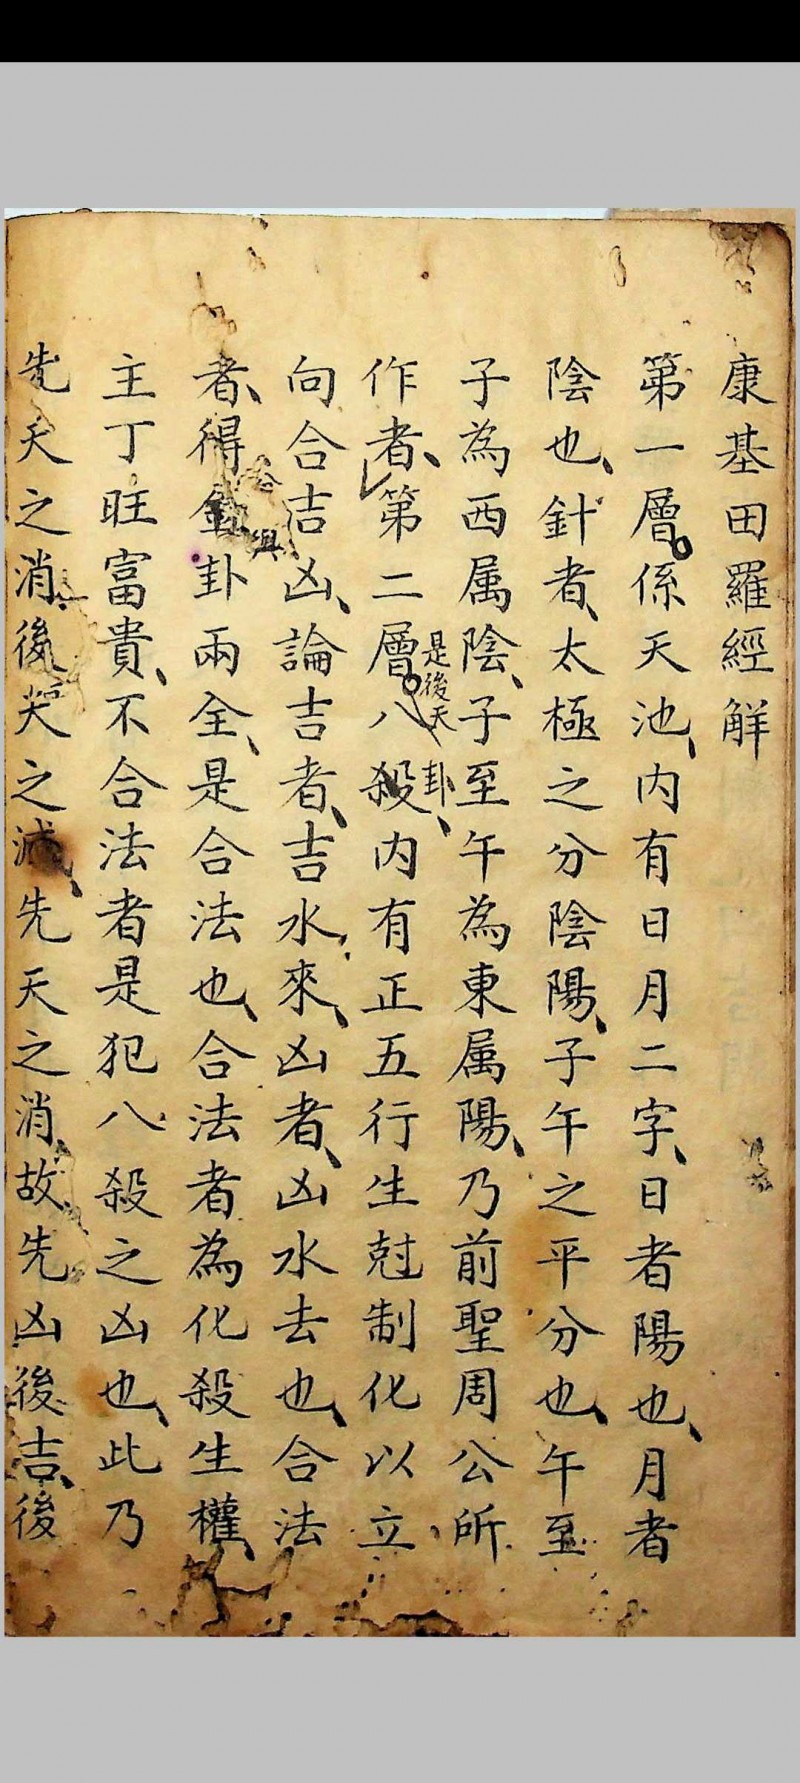 康基田羅經解
第一層係天池、內有日月二字、日者陽也、月者
陰也、針者、太極之分陰陽、子午之平分也、午至
子為西属陰、子至午為東属陽、乃前聖周公所
作者、第二層八殺內有正五行生尅制化以立
是後天卦、
向合吉凶、論吉者、吉水來、凶者、凶水去也、合法
者、得卦兩全、是合法也、合法者為化殺生權、
主丁旺富貴、不合法者是犯八殺之凶也、此乃
先天之消、後天之滅、先天之消、故先凶後吉、後